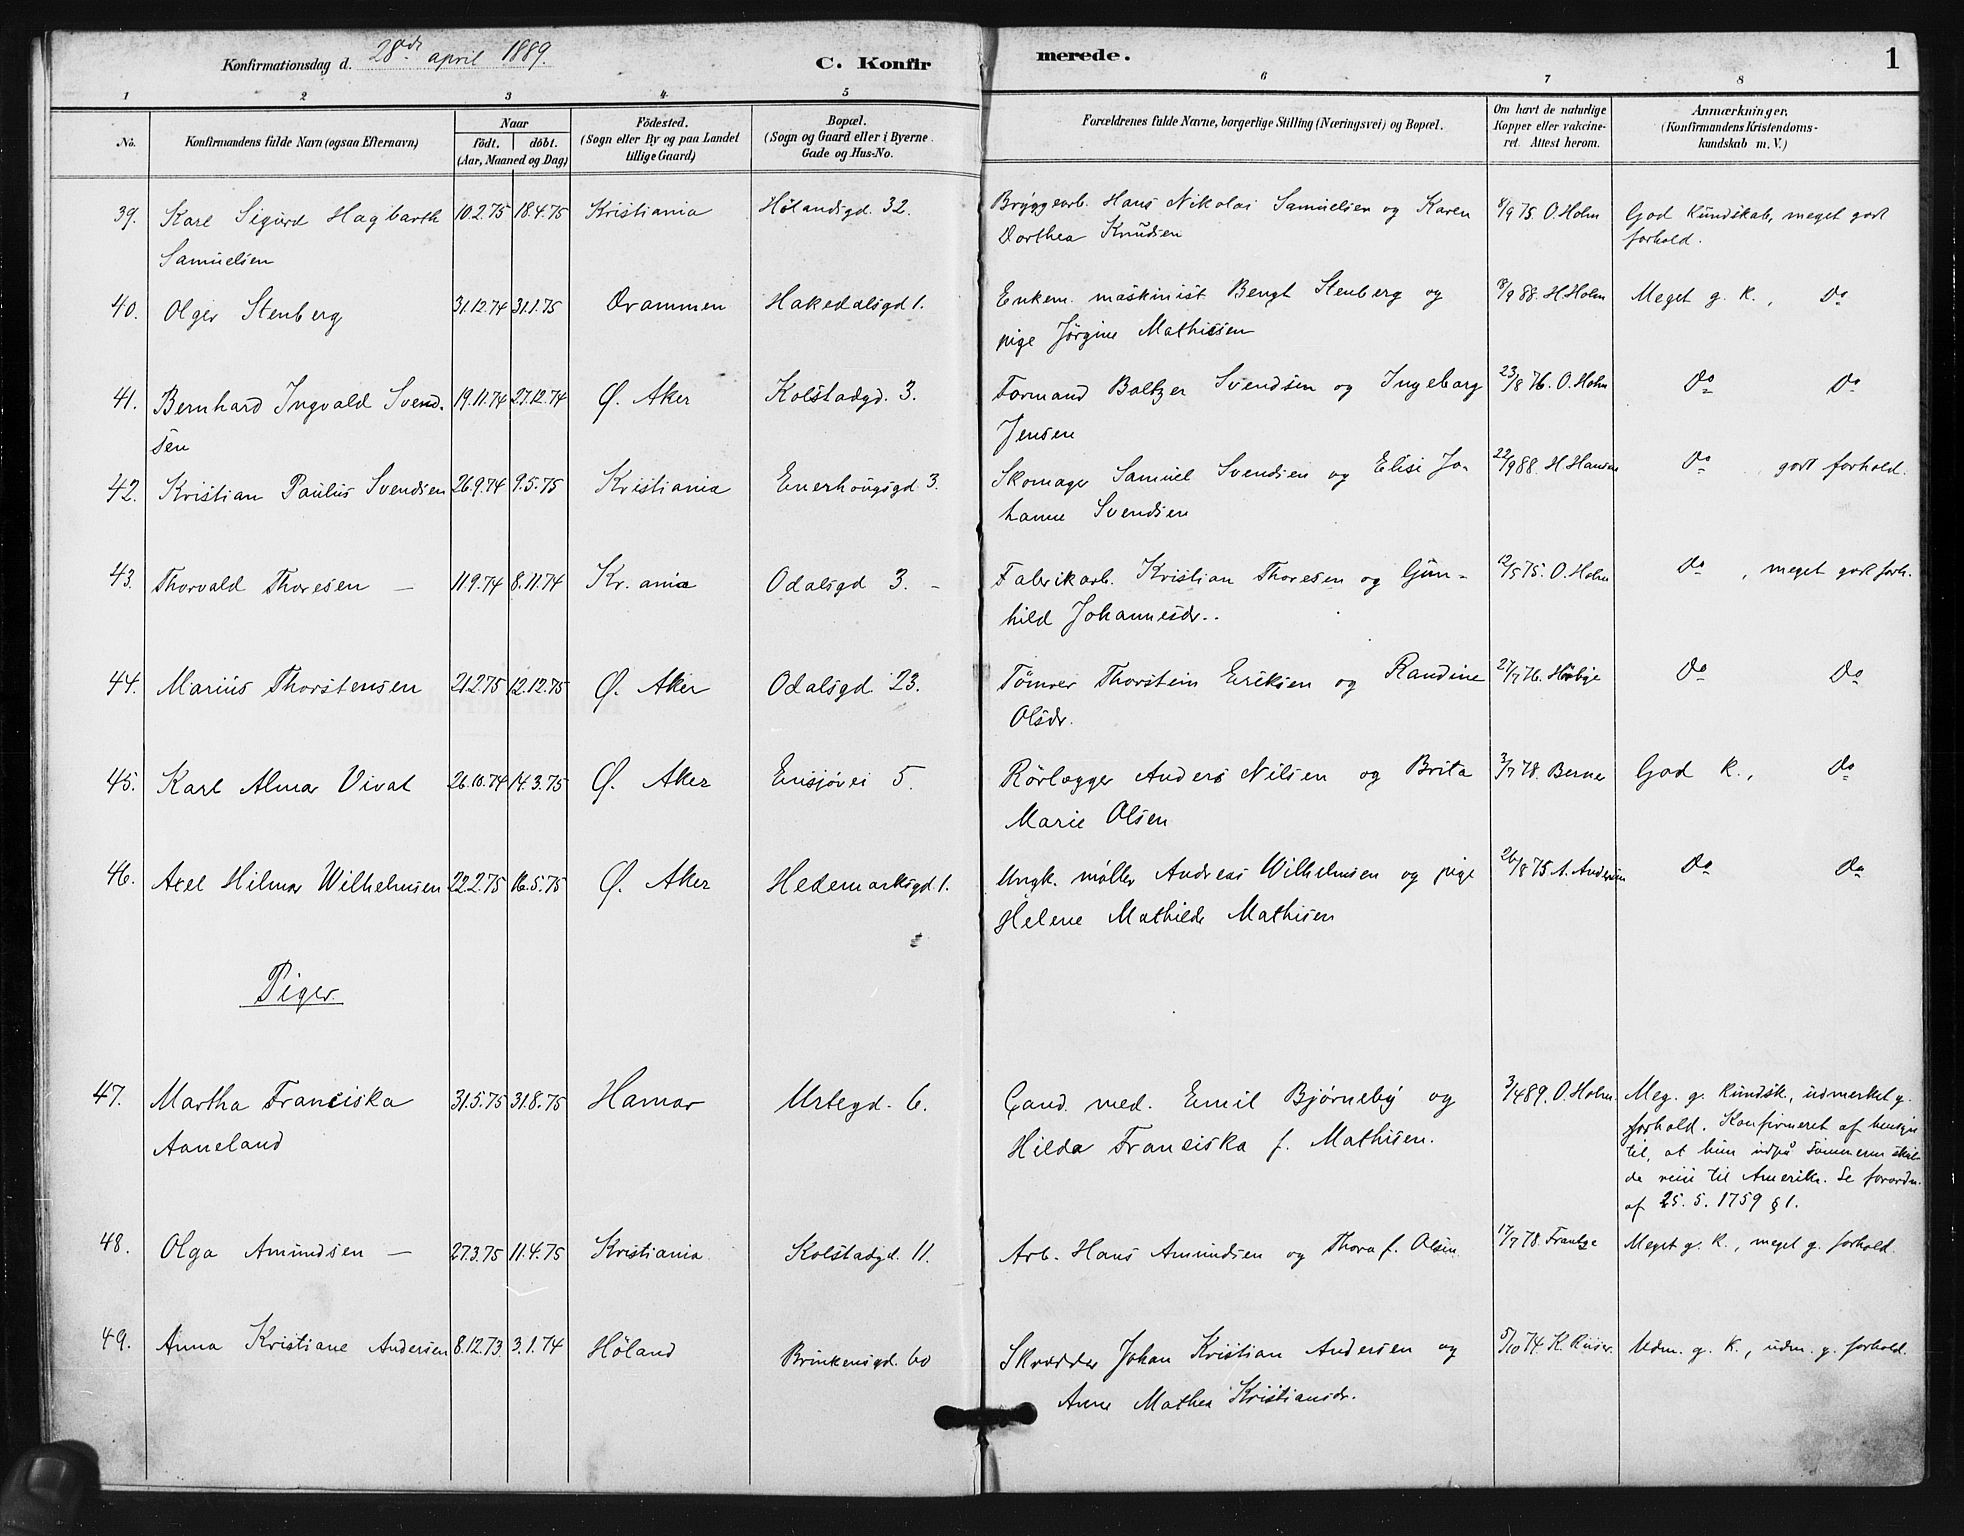 Konfirmationsdag d. 28de april 1889. C. Konfirmerede. 1
1 2 3 4 5 6 7 8
No. Konfirmandens fulde Navn (ogsaa Efternavn) Naar født. døbt. (Aar, Maaned og Dag) Fødested. (Sogn eller By og paa Landet tillige Gaard) Bopæl. (Sogn og Gaard eller i Byerne Gade og Hus-No. Forældrenes fulde Navne, borgerlige Stilling (Næringsvei) og Bopæl. Om havt de naturlige Kopper eller vakcineret. Attest herom. Anmærkninger. (Konfirmandens Kristendomskundskab m. V.)
39. Karl Sigurd Hagbarth 10.2.75 18.4.75 Kristiania Hølandsgd. 32. Bryggearb. Hans Nikolai Samuelsen og Karen 8/9 75. O. Holm God Kundskab, meget godt
Samuelsen Dorthea Knudsen forhold.
40. Olger Stenberg 31.12.74 31.1.75 Drammen Hakedalsgd 1. Enkem. maskinist Bengt Stenberg og 8/9 88. H. Holm Meget g. K., Do
pige Jørgine Mathisen
41. Bernhard Ingvald Svend- 19.11.74 27.12.74 Ø. Aker Kolstadgd. 3. Formand Baltzer Svendsen og Ingeborg 23/8 76. O. Holm Do Do
sen Jensen
42. Kristian Paulus Svendsen 26.9.74 9.5.75 Kristiania Enerhougsgd 3. Skomager Samuel Svendsen og Elise Jo- 22/9 88. H. Hansen Do , godt forhold.
hanne Svendsen
43. Thorvald Thoresen — 11.9.74 8.11.74 Kr.ania Odalsgd 3. - Fabrikarb. Kristian Thoresen og Gun- 12/5 75. O. Holm Do , meget godt forh.
hild Johannesdr..
44. Marius Thorstensen 21.2.75 12.12.75 Ø. Aker Odalsgd. 23. Tømrer Thorstein Eriksen og Randine 27/7 76. Høbye Do Do
Olsdr.
45. Karl Almar Vivat 26.10.74 14.3.75 Ø. Aker Ensjøvei 5. Rørlægger Anders Nilsen og Brita 3/7 78. Berner God K., Do
Marie Olsen
46. Axel Hilmar Wilhelmsen 22.2.75 16.5.75 Ø. Aker Hedemarksgd. 1. Ungk. møller Andreas Wilhelmsen og pige 26/8 75 A. Andersen Do Do
Helene Mathilde Mathisen
Piger.
47. Martha Franciska 31.5.75 31.8.75 Hamar Urtegd. 6. Cand. med. Emil Bjørneby og 3/4 89. O. Holm. Meg. g. Kundsk., udmerket g.
Aaneland Hilda Franciska f. Mathisen. forhold. Konfirmeret af hensyn
til, at hun udpå Sommeren skul-
de reise til Amerika. Se forordn.
af 25. 5. 1759 § 1.
48. Olga Amundsen — 27.3.75 11.4.75 Kristiania Kolstadgd. 11. Arb. Hans Amundsen og Thora f. Olsen 17/7 78. Frantze Meget g. K., meget g. forhold.
49. Anna Kristiane Andersen 8.12.73. 3.1.74 Høland Brinkensgd. 60 Skrædder Johan Kristian Andersen og 5/10 74. K. Riiser. Udm. g. K., udm. g. forhold.
Anne Mathea Kristiansdr.